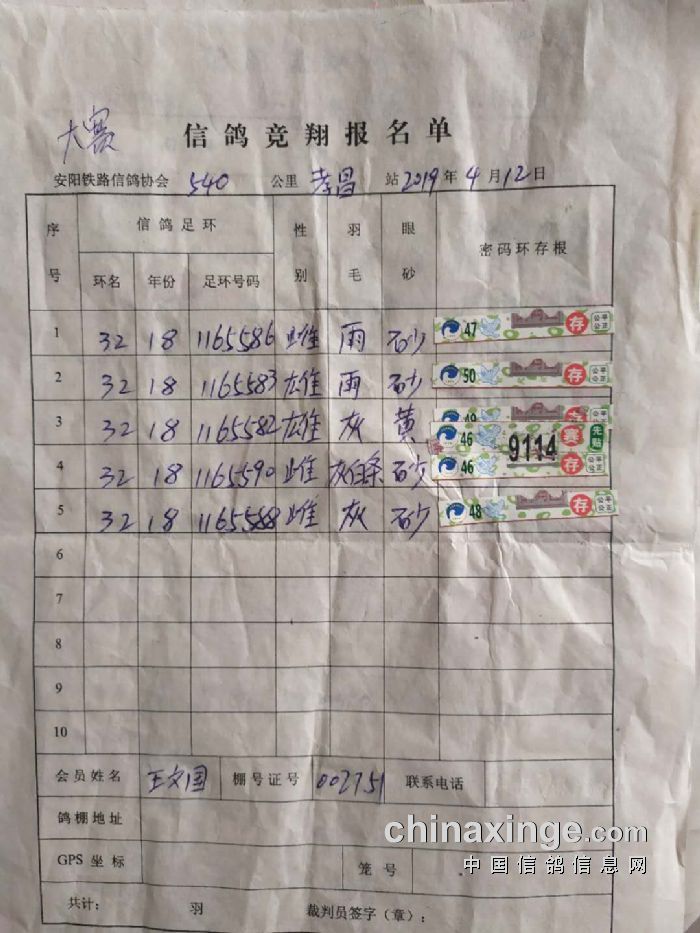 大赛
信鸽竞翔报名单
安阳铁路信鸽协会 540 公里 孝昌 站 2019 年 4 月 12 日
序号 信鸽足环 性别 羽毛 眼砂 密码环存根
环名 年份 足环号码
1 32 18 1165586 雌 雨 砂 47 存 公平公正
2 32 18 1165583 雄 雨 砂 50 存 公平公正
3 32 18 1165582 雄 灰 黄 49 存 公平公正
46 9114 赛 先贴
4 32 18 1165590 雌 砂 46 存 公平公正
5 32 18 1165588 雌 灰 砂 48 存 公平公正
6
7
8
9
10
会员姓名 王文国 棚号证号 002751 联系电话
鸽棚地址
GPS 坐标 笼号
共计: 羽 裁判员签字（章）:
chinaxinge.com
中国信鸽信息网